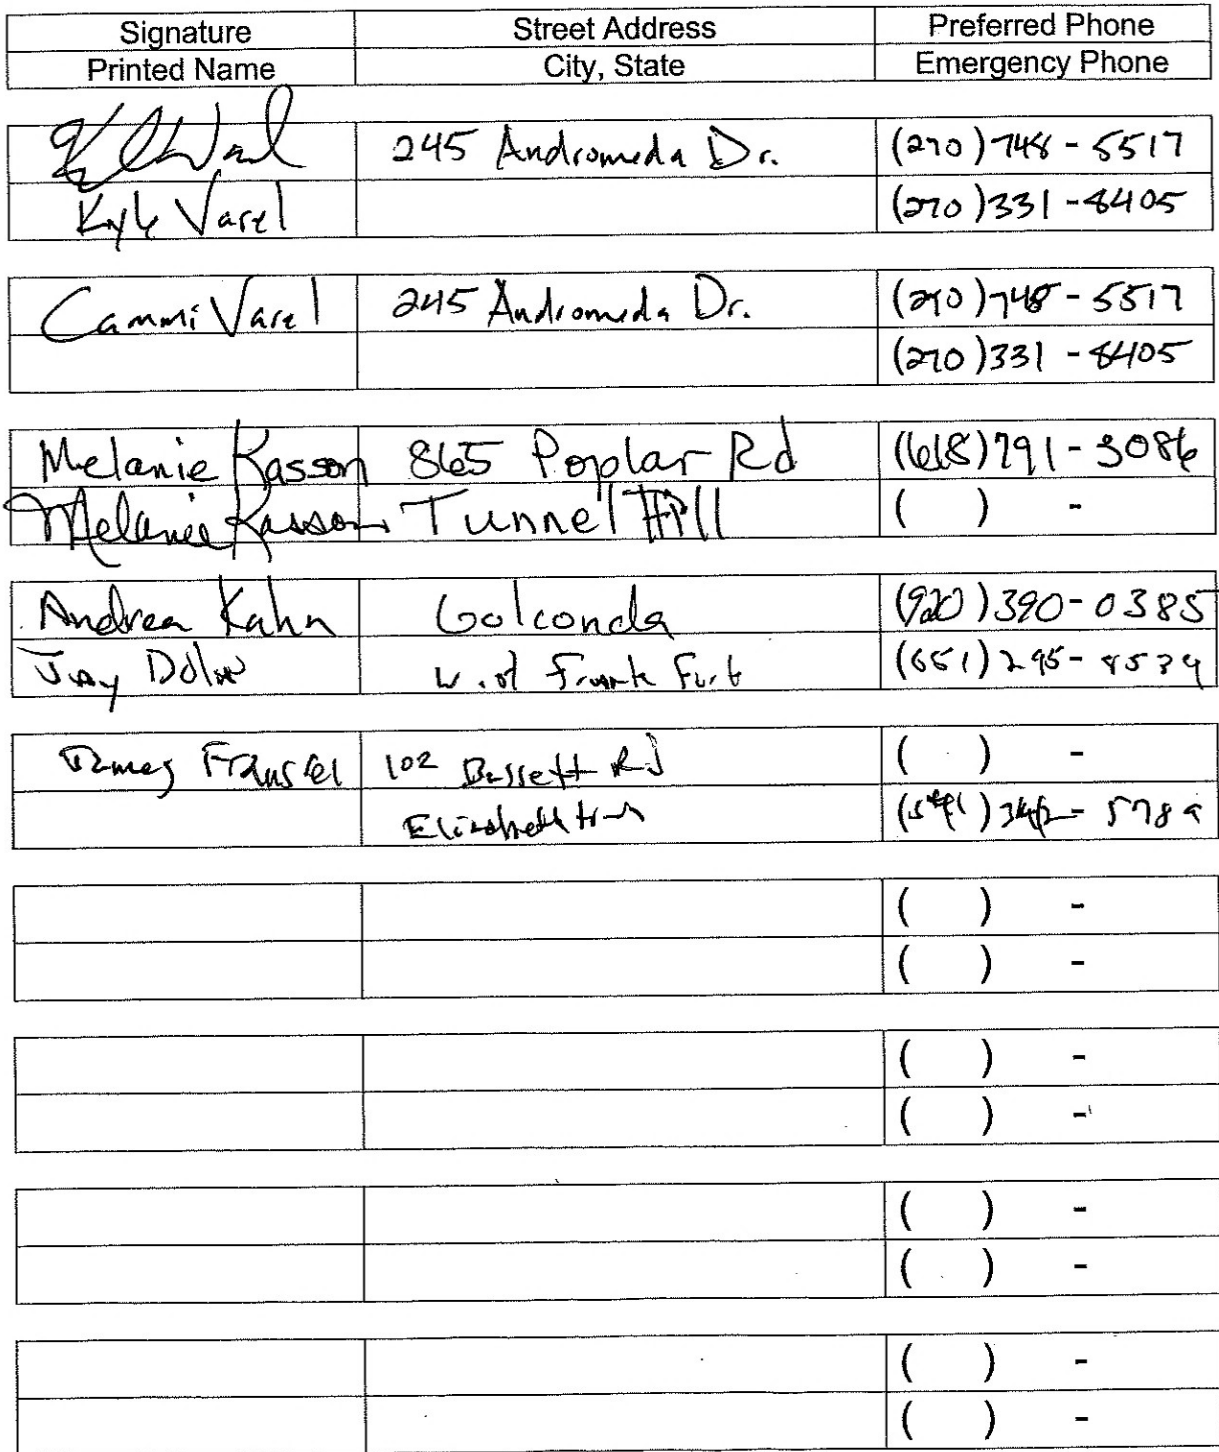 Signature Street Address Preferred Phone
Printed Name City, State Emergency Phone
245 Andromeda Dr. (270)748-5517
Kyle Varel (270)331-8405
Cammi Varel 245 Andromeda Dr. (270)748-5517
(270)331-8405
Melanie Kasson 865 Poplar Rd (618)791-3086
Melanie Kasson Tunnel Hill ( ) -
Andrea Kahn Golconda (920)390-0385
Jay W. of Frank Furt (651)295-8539
James 102 Bassett Rd ( ) -
Elizabethtown
( ) -
( ) -
( ) -
( ) -
( ) -
( ) -
( ) -
( ) -